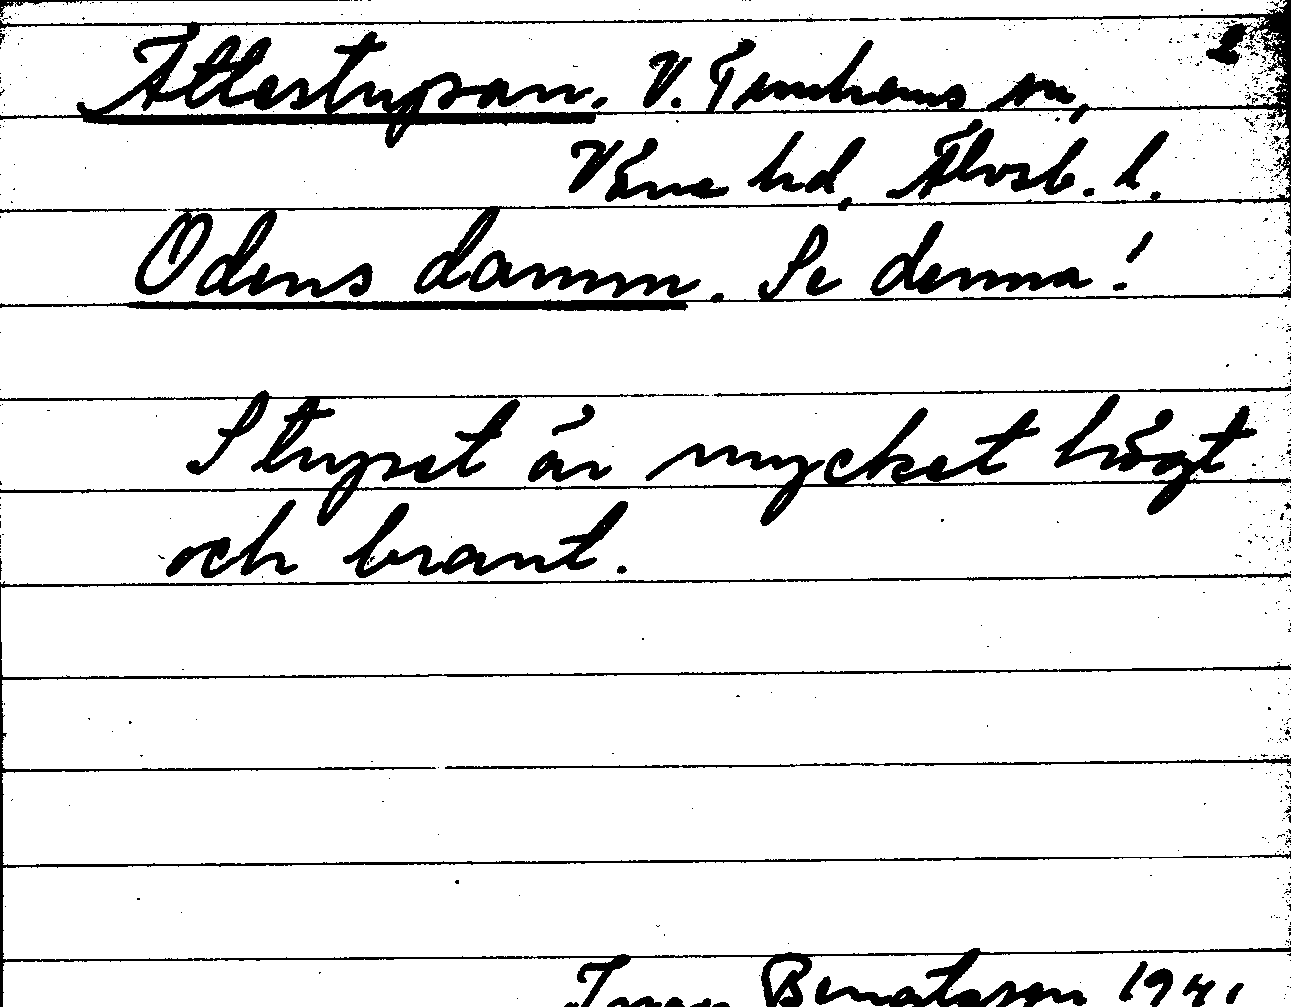 Ättestupan. V. Tunhems sn, 2
Väne hd, Älvsb. l.
Odens damm. Se denna!
Stupet är mycket högt
och brant.
Bengtsson 1941